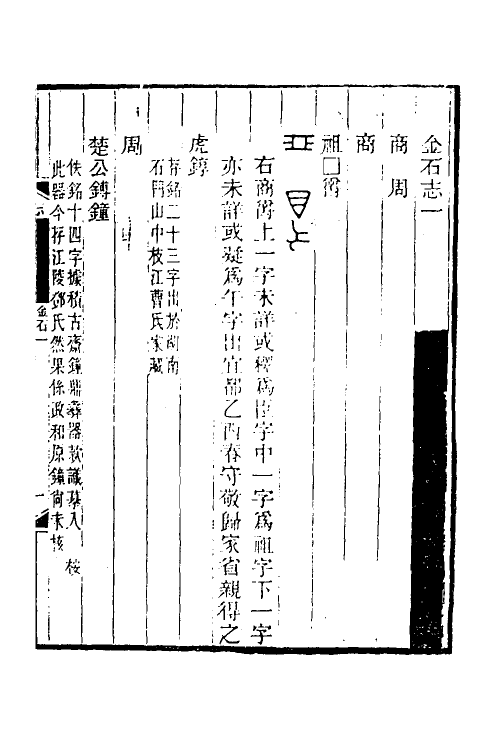 金石志一
商 周
商
祖□爵
右商爵上一字未詳或釋爲臣字中一字爲祖字下一字
亦未詳或疑爲午字出宜都乙酉春守敬歸家省親得之
虎錞
存銘二十三字出於湖南
石門山中枝江曹氏家藏
周
楚公鎛鐘
佚銘十四字據積古齋鐘鼎彝器款識摹入 桉
此器今存江陵鄧氏然果係政和原鐘尚未核
金石一